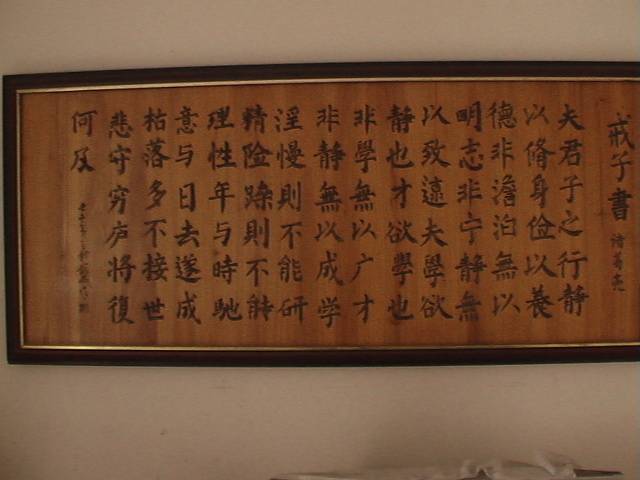 戒子書 诸葛亮
夫君子之行静
以脩身俭以養
德非澹泊無以
明志非宁静無
以致遠夫學欲
静也才欲學也
非學無以广才
非静無以成学
淫慢則不能研
精险躁則不能
理性年与時馳
意与日去遂成
枯落多不接世
悲守穷庐将復
何及